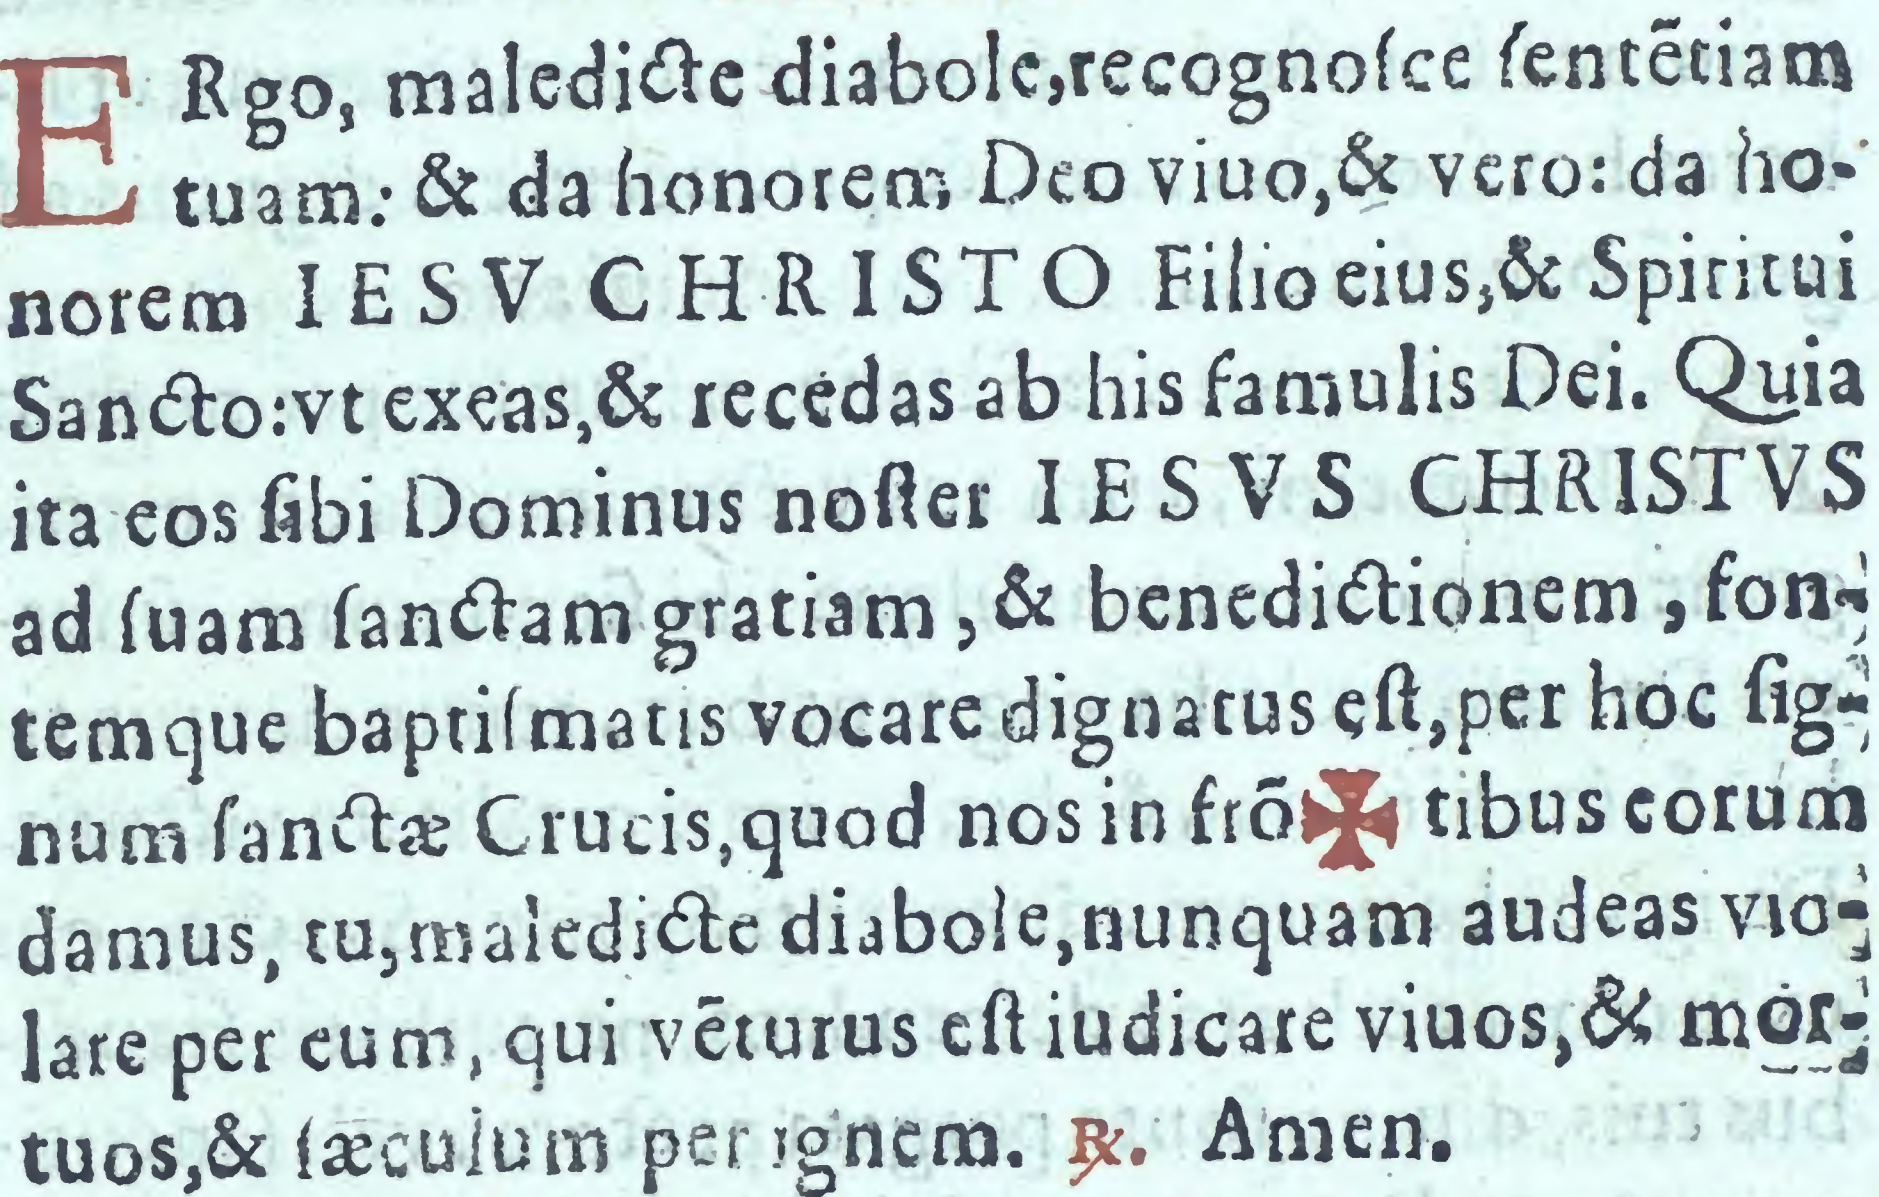 ERgo, maledicte diabole, recognoſce ſentẽtiam
tuam: & da honorem Deo viuo, & vero: da ho-
norem IESV CHRISTO Filio eius, & Spiritui
Sancto: vt exeas, & recedas ab his famulis Dei. Quia
ita eos ſibi Dominus noſter IESVS CHRISTVS
ad ſuam ſanctam gratiam, & benedictionem, fon-
temque baptiſmatis vocare dignatus eſt, per hoc ſig-
num ſanctæ Crucis, quod nos in frõ ✠ tibus eorum
damus, tu, maledicte diabole, nunquam audeas vio-
lare per eum, qui vẽturus eſt iudicare viuos, & mor-
tuos, & ſæculum per ignem. ℞. Amen.